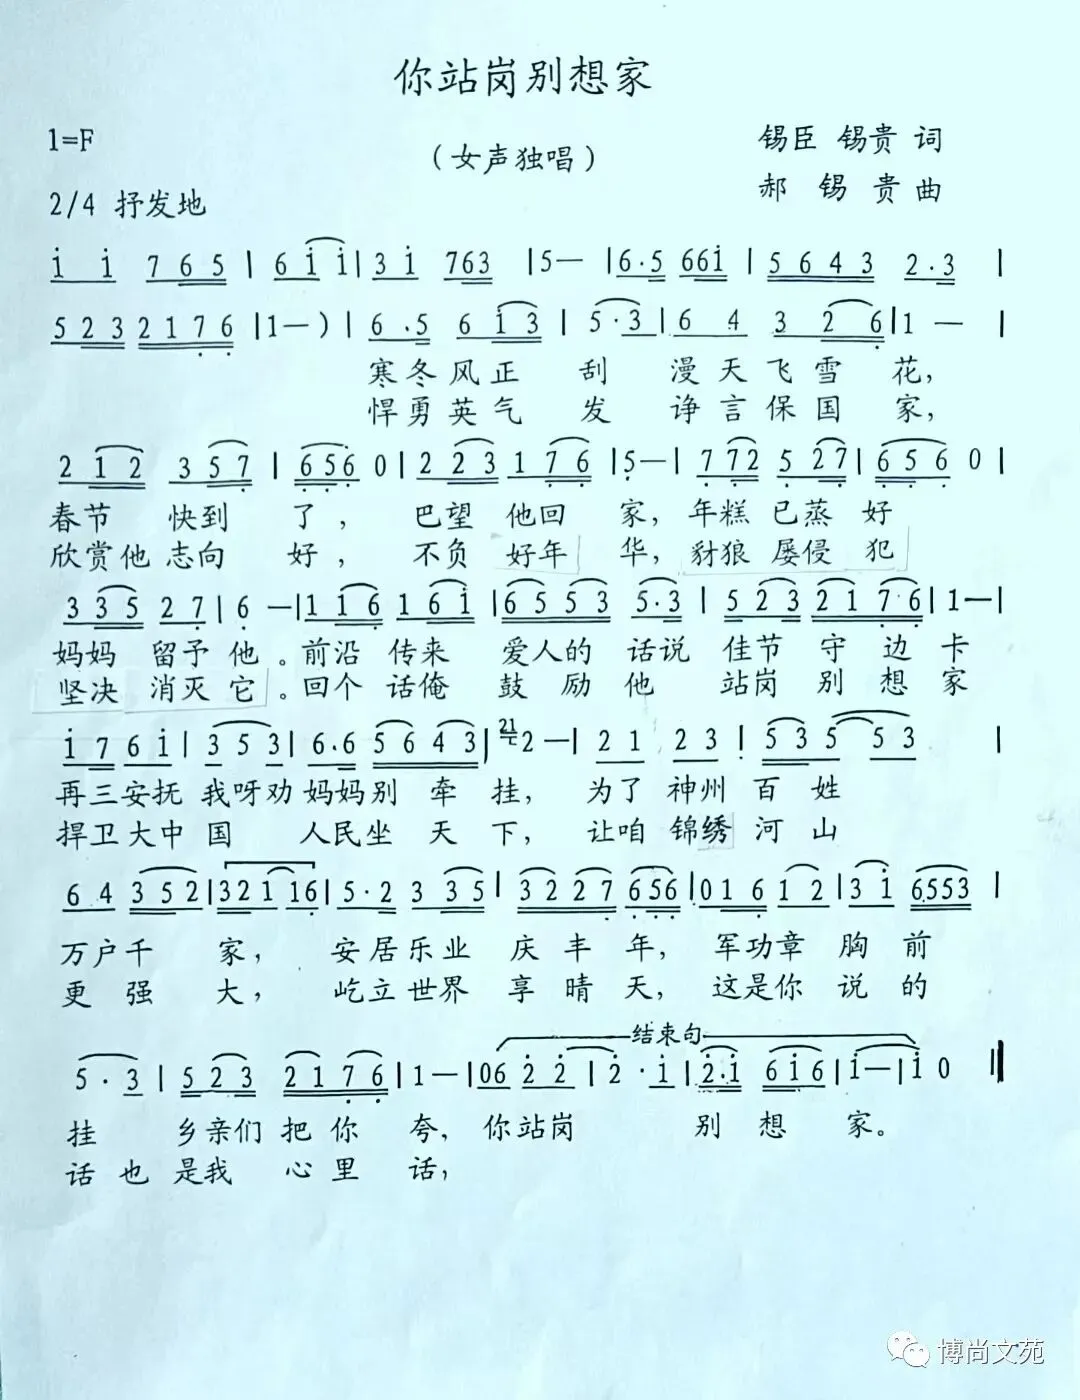 你站岗别想家
1=F
（女声独唱）
锡臣 锡贵 词
2/4 抒发地
郝 锡 贵 曲
i i 7 6 5 | 6 i i | 3 i 763 | 5— | 6·5 66i | 5 6 4 3 2·3 |
5 2 3 2 1 7 6 | 1—）| 6·5 6 i 3 | 5·3 | 6 4 3 2 6 | 1 — |
寒冬风正 刮 漫天飞雪 花，
悍勇英气 发 诤言保国 家，
2 1 2 3 5 7 | 6 5 6 0 | 2 2 3 1 7 6 | 5— | 7 7 2 5 2 7 | 6 5 6 0 |
春节 快到 了， 巴望 他回 家，年糕已蒸 好
欣赏他志向 好， 不负 好年 华，豺狼屡侵 犯
3 3 5 2 7 | 6 — | 1 1 6 1 6 i | 6 5 5 3 5·3 | 5 2 3 2 1 7 6 | 1— |
妈妈 留予 他。前沿 传来 爱人的 话说 佳节 守 边 卡
坚决 消灭 它。回个 话俺 鼓励他 站岗 别 想 家
i 7 6 i | 3 5 3 | 6·6 5 6 4 3 | 2— | 2 1 2 3 | 5 3 5 5 3 |
再三安抚 我呀劝 妈妈别 牵 挂， 为了 神州 百 姓
捍卫大中 国 人民坐 天 下， 让咱 锦绣 河 山
6 4 3 5 2 | 3 2 1 1 6 | 5·2 3 3 5 | 3 2 2 7 6 5 6 | 0 1 6 1 2 | 3 i 6553 |
万户千 家， 安居乐业 庆丰 年， 军功章 胸 前
更 强 大， 屹立世界 享晴 天， 这是你 说 的
结束句
5·3 | 5 2 3 2 1 7 6 | 1— | 06 2 2 | 2·i | 2·i 6 i 6 | i— | i 0 ‖
挂 乡亲们 把 你 夸，你站岗 别 想 家。
话 也 是我 心 里 话，
博尚文苑